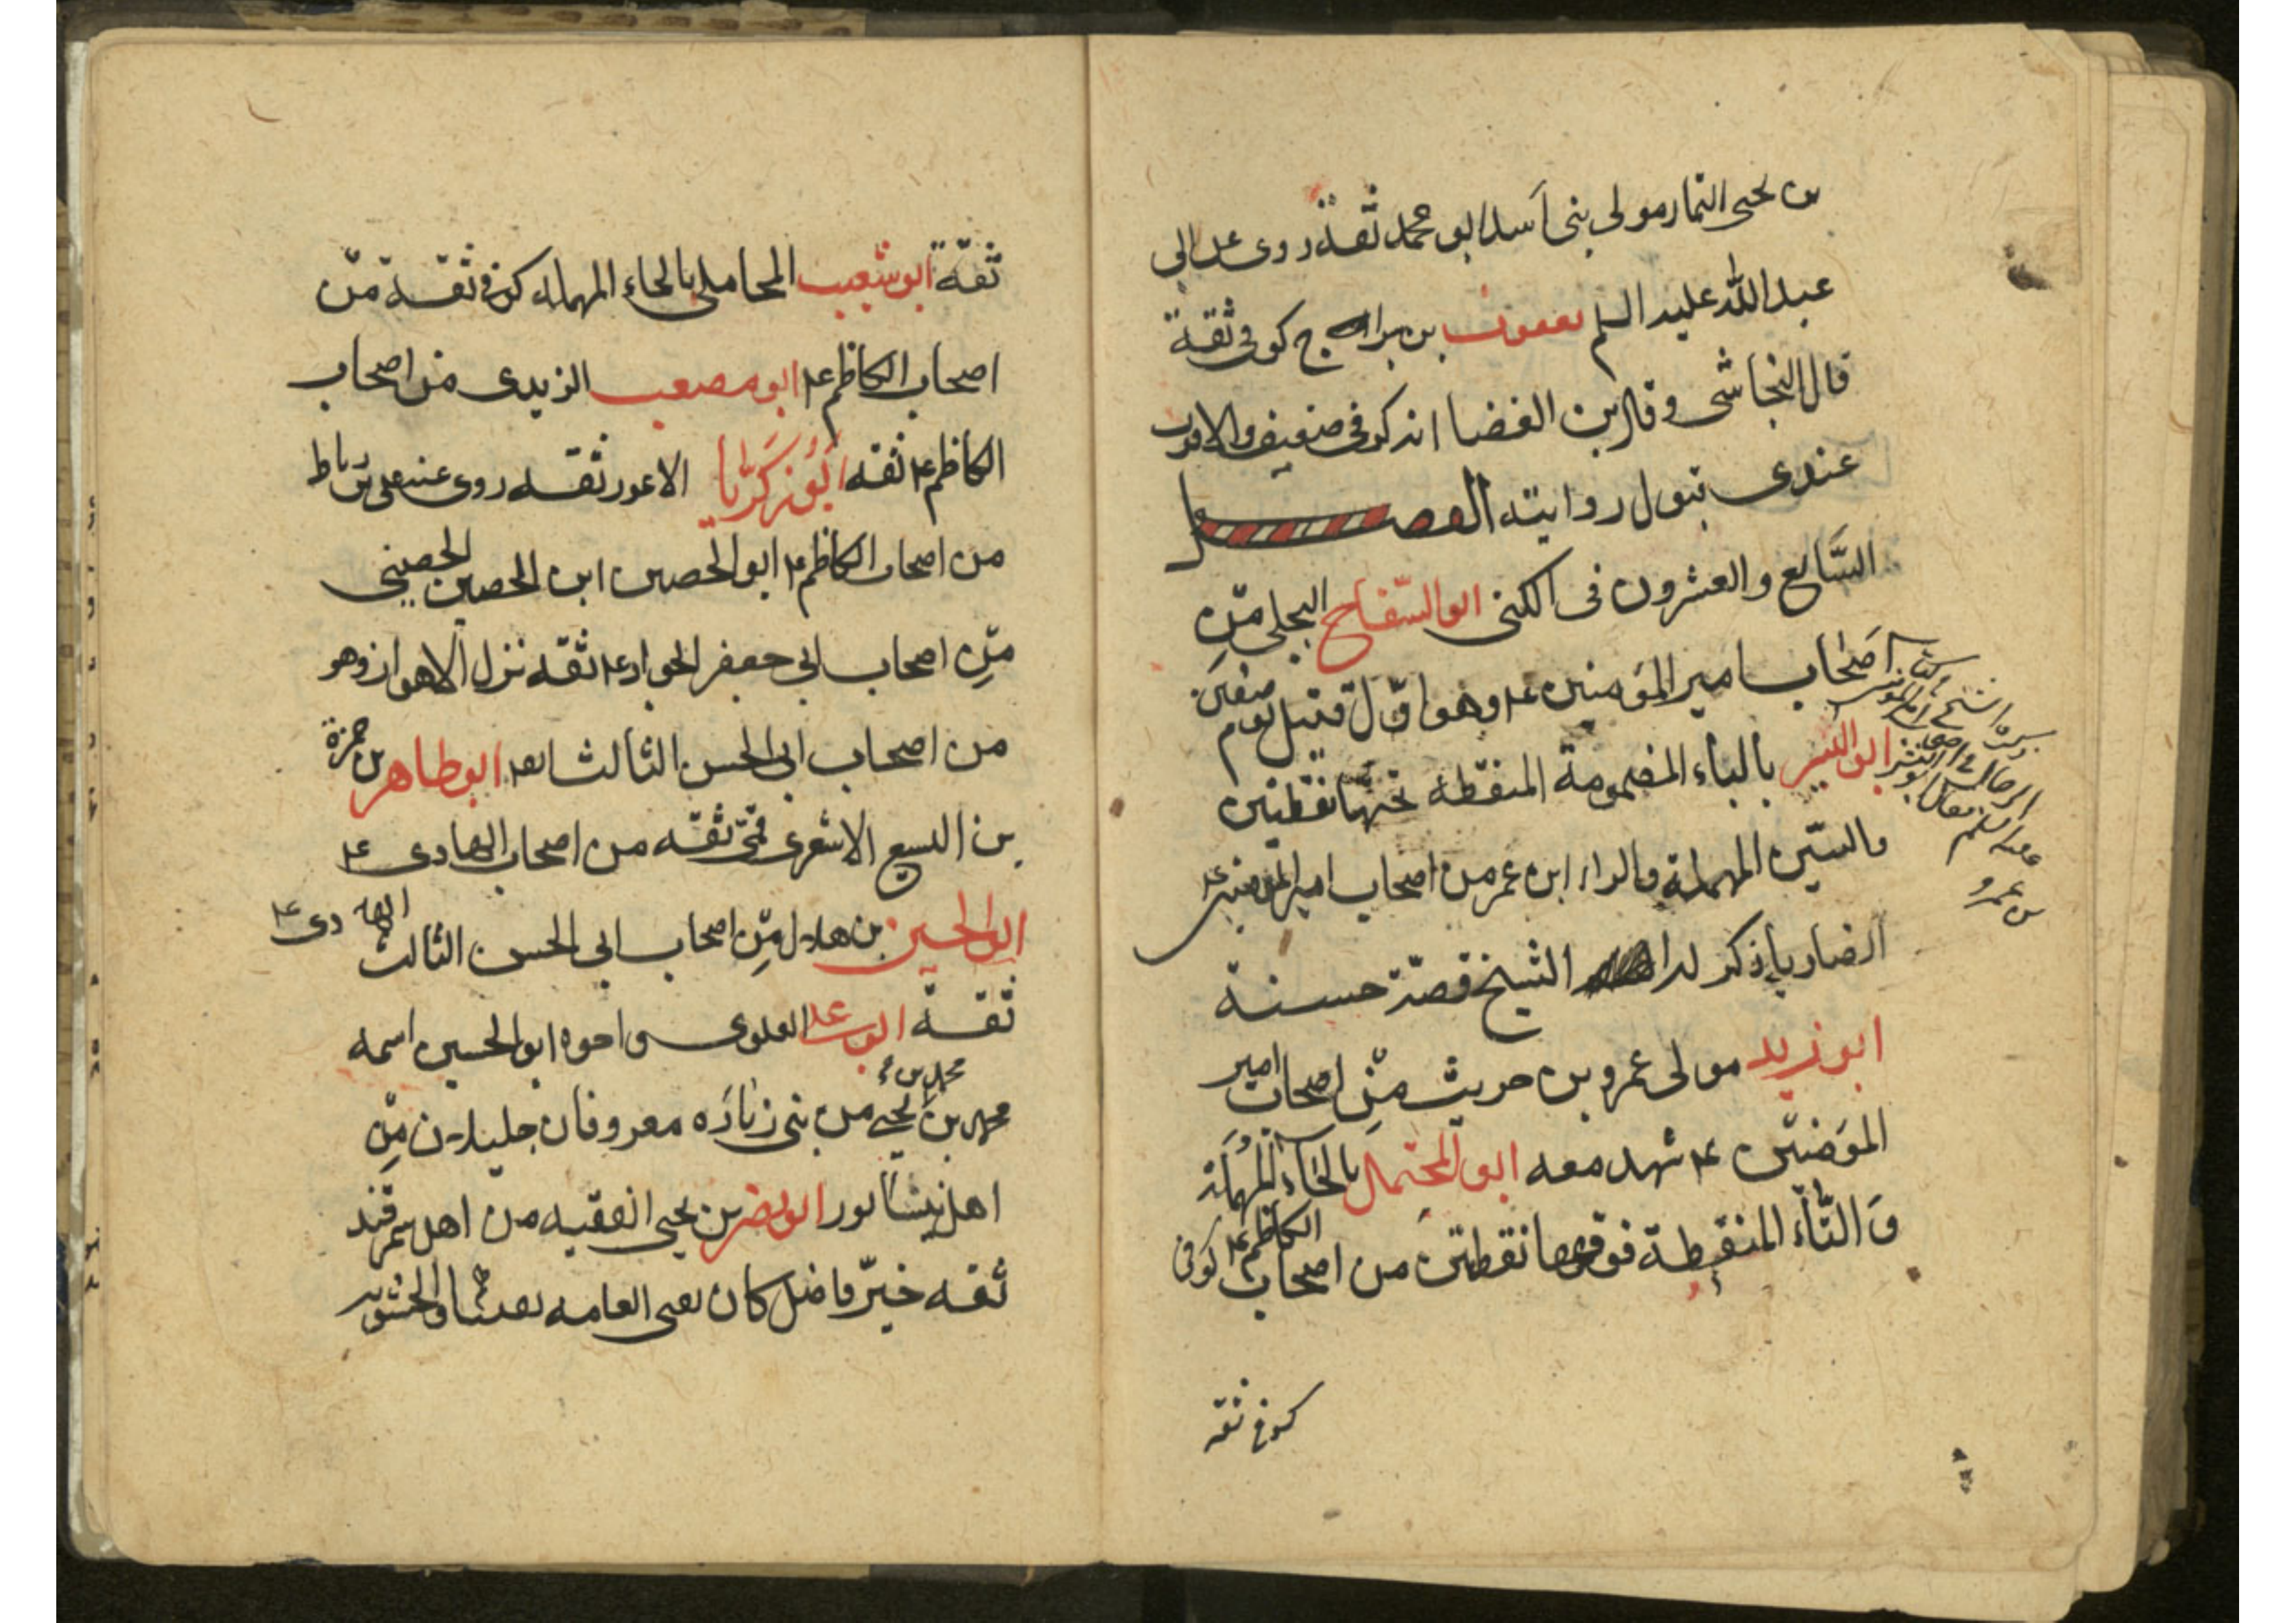 بن يحيى التمار مولى بنى اسد ابو محمد ثقة روى عن ابى
عبدالله عليه السلم يعقوب بن سراج كوفى ثقة
قال النجاشى وقال بن الغضا انه كوفى ضعيف والاقرب
عندى قبول روايته الفصل
السَّابع والعشرون فى الكنى ابو السّفاح البجلى مِن
اصحاب امير المؤمنين ع وهو اوّل قتيل يوم صفين
ابو اليسر بالياء المضمومة المنقطه تحتها نقطتين
والسّين المهملة والراء ابن عمر من اصحاب امير المؤمنين ع
الشيخ قصّة حسنة
ابو زيد مولى عمرو بن حريث مِن اصحاب امير
المؤمنين ع شهد معه ابو المحتمل بالحاء المهملة
وَ التّاء المنقطة فوقها نقطتين من اصحاب الكاظم ع كوفى
كوفى ثقه
ثقة ابو شعيب المحاملى بالحاء المهمله كوفى ثقة مِن
اصحاب الكاظم ع ابو مصعب الزيدى من اصحاب
الكاظم ع ثقه ابو زكريا الاعور ثقه روى عنه على بن رباط
من اصحاب الكاظم ع ابو الحصين ابن الحصين الحصينى
مِن اصحاب ابى جعفر الجواد ع ثقه نزل الاهواز وهو
من اصحاب ابى الحسن الثالث ايضا ابو طاهر بن حمزة
بن اليسع الاشعرى قمّى ثقه من اصحاب الهادى ع
ابو الحسين بن هلال مِن اصحاب ابى الحسن الثالث الهادى ع
ثقة ابو على العلوى واخوه ابو الحسين اسمه
محمد بن يحيى من بنى زبارَه معروفان جليلان مِن
اهل نيشابور ابو نصر بن يحيى الفقيه من اهل سمرقند
ثقه خيّر فاضل كان يفتى العامه بفتياهم والحشويه